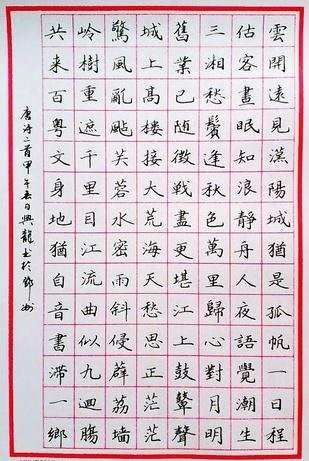 雲開遠見漢陽城猶是孤帆一日程
估客晝眠知浪靜舟人夜語覺潮生
三湘愁鬢逢秋色萬里歸心對月明
舊業已随徵戰盡更堪江上鼓鼙聲
城上高樓接大荒海天愁思正茫茫
驚風亂颭芙蓉水密雨斜侵薜荔墙
岭樹重遮千里目江流曲似九迴腸
共来百粤文身地猶自音書滯一鄉
唐诗二首甲午春日興龍书於鄭州